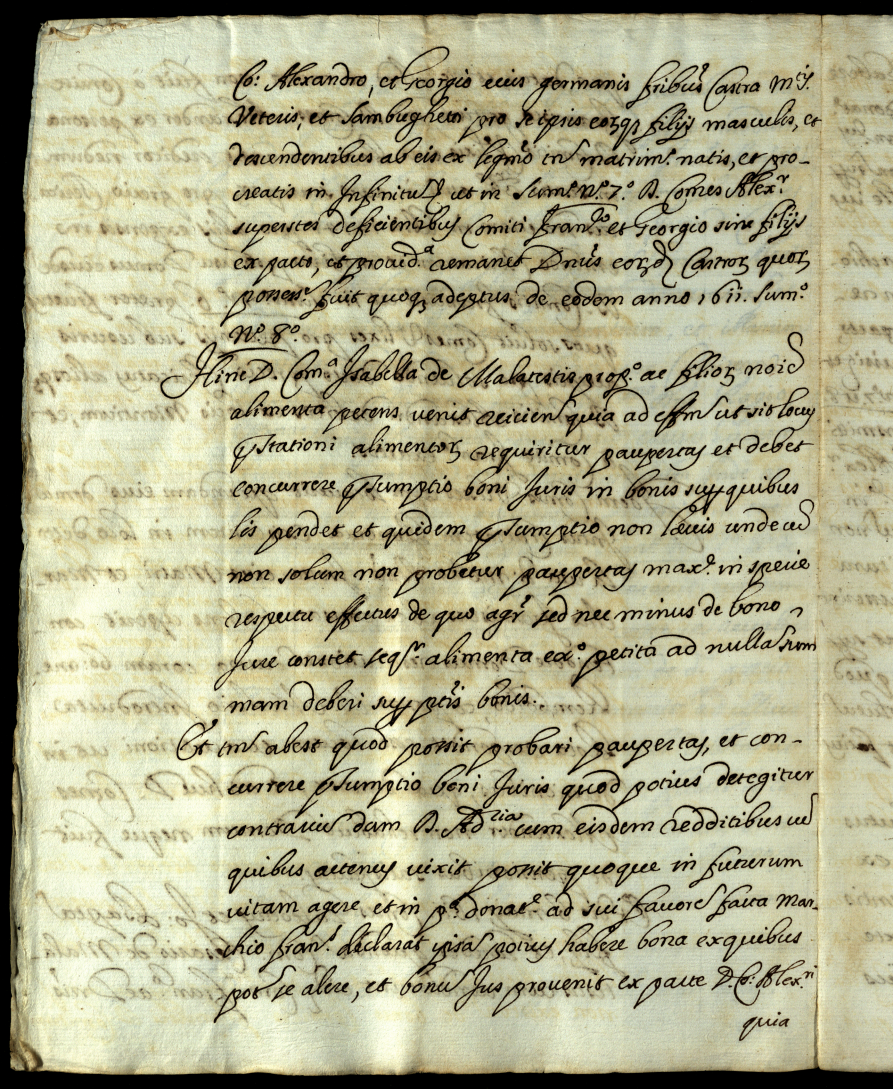 Co: Alexandro, et Georgio eius germanis fribus Castra M.ti
Veteris, et Sambughetti pro se ipsis eorq; filijs masculis, et
descendentibus ab eis ex legmo tm matrim.o natis, et pro-
creatis in Infinitu ut in Sum.o N.o 7.o D. Comes Alex.r
superstes deficientibus Comiti Fran.co et Georgio sine filijs
ex pacto, et provid.a remanet Dnus eord Castror quor
possess. fuit quoq; adeptus de eodem anno 1611. Sum.o
N.o 8.o
Hinc D. Com.a Isabella de Malatestis prop.o ac filior noie
alimenta petens venit reicien quia ad effm ut sit locus
pstationi alimentor requiritur paupertas et debet
concurrere psumptio boni Juris in bonis sup quibus
lis pendet et quidem psumptio non levis unde cu
non solum non probetur paupertas max.e in specie
respectu effectus de quo agr sed nec minus de bono
Jure constet seqr alimenta ex.o petita ad nulla sum
mam deberi sup ptis bonis.
Et tm abest quod possit probari paupertas, et con-
currere psumptio boni Juris quod potius detegitur
contrariu dam D. Ad.ria cum eisdem redditibus cu
quibus actenus vixit possit quoque in futurum
vitam agere et in p.a donat.e ad sui favore facta Mar-
chio Fran.s declarat ipsa potius habere bona ex quibus
pot se alere, et bonu Jus provenit ex parte D. Co: Alex.ri
quia